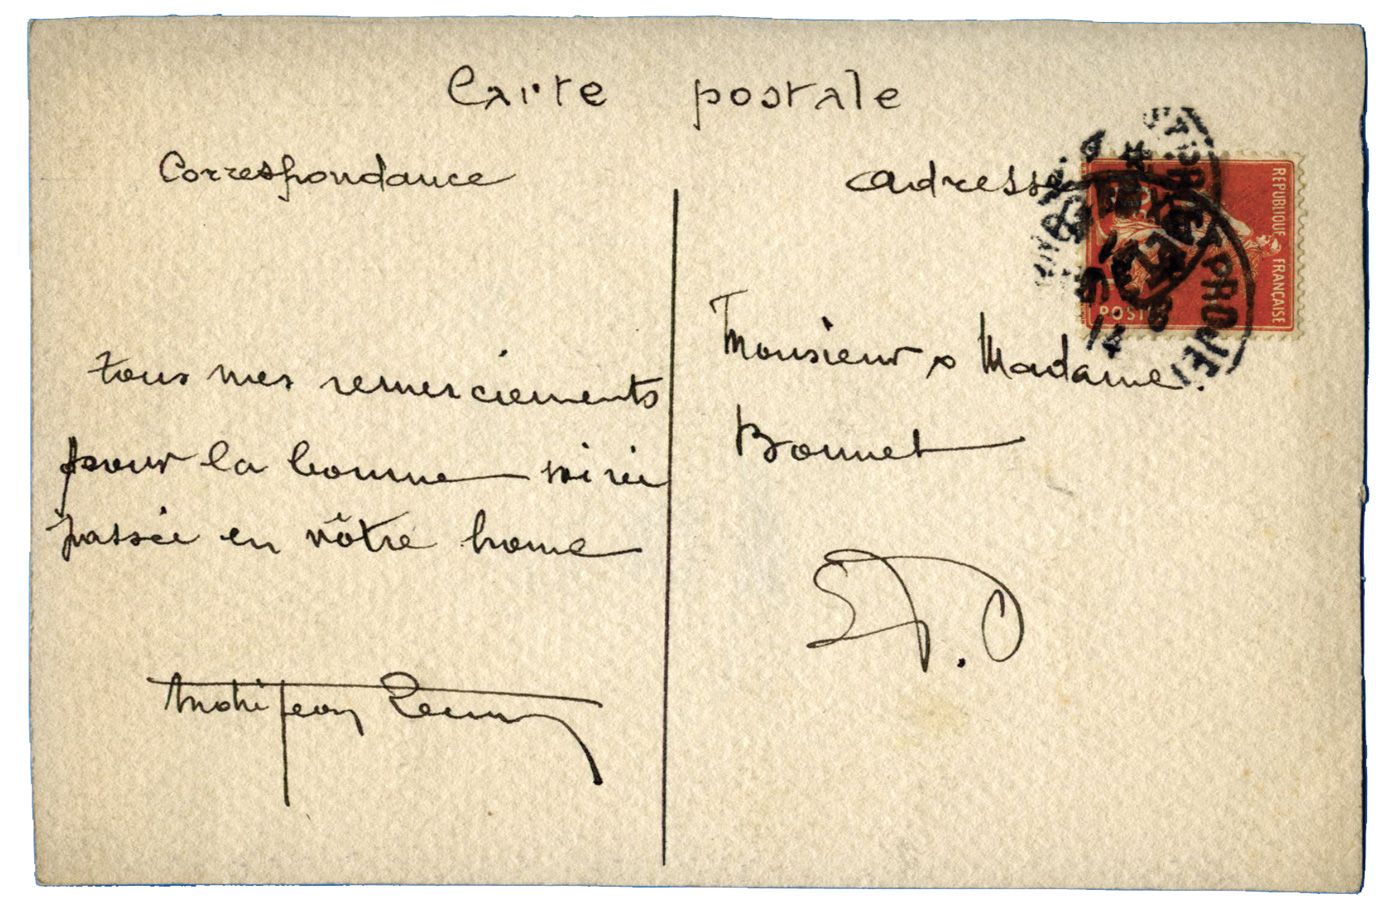 Carte postale
Correspondance
tous mes remerciements
pour la bonne soirée
passée en vôtre home
Adresse
REPUBLIQUE FRANÇAISE
Monsieur & Madame
Bonnet